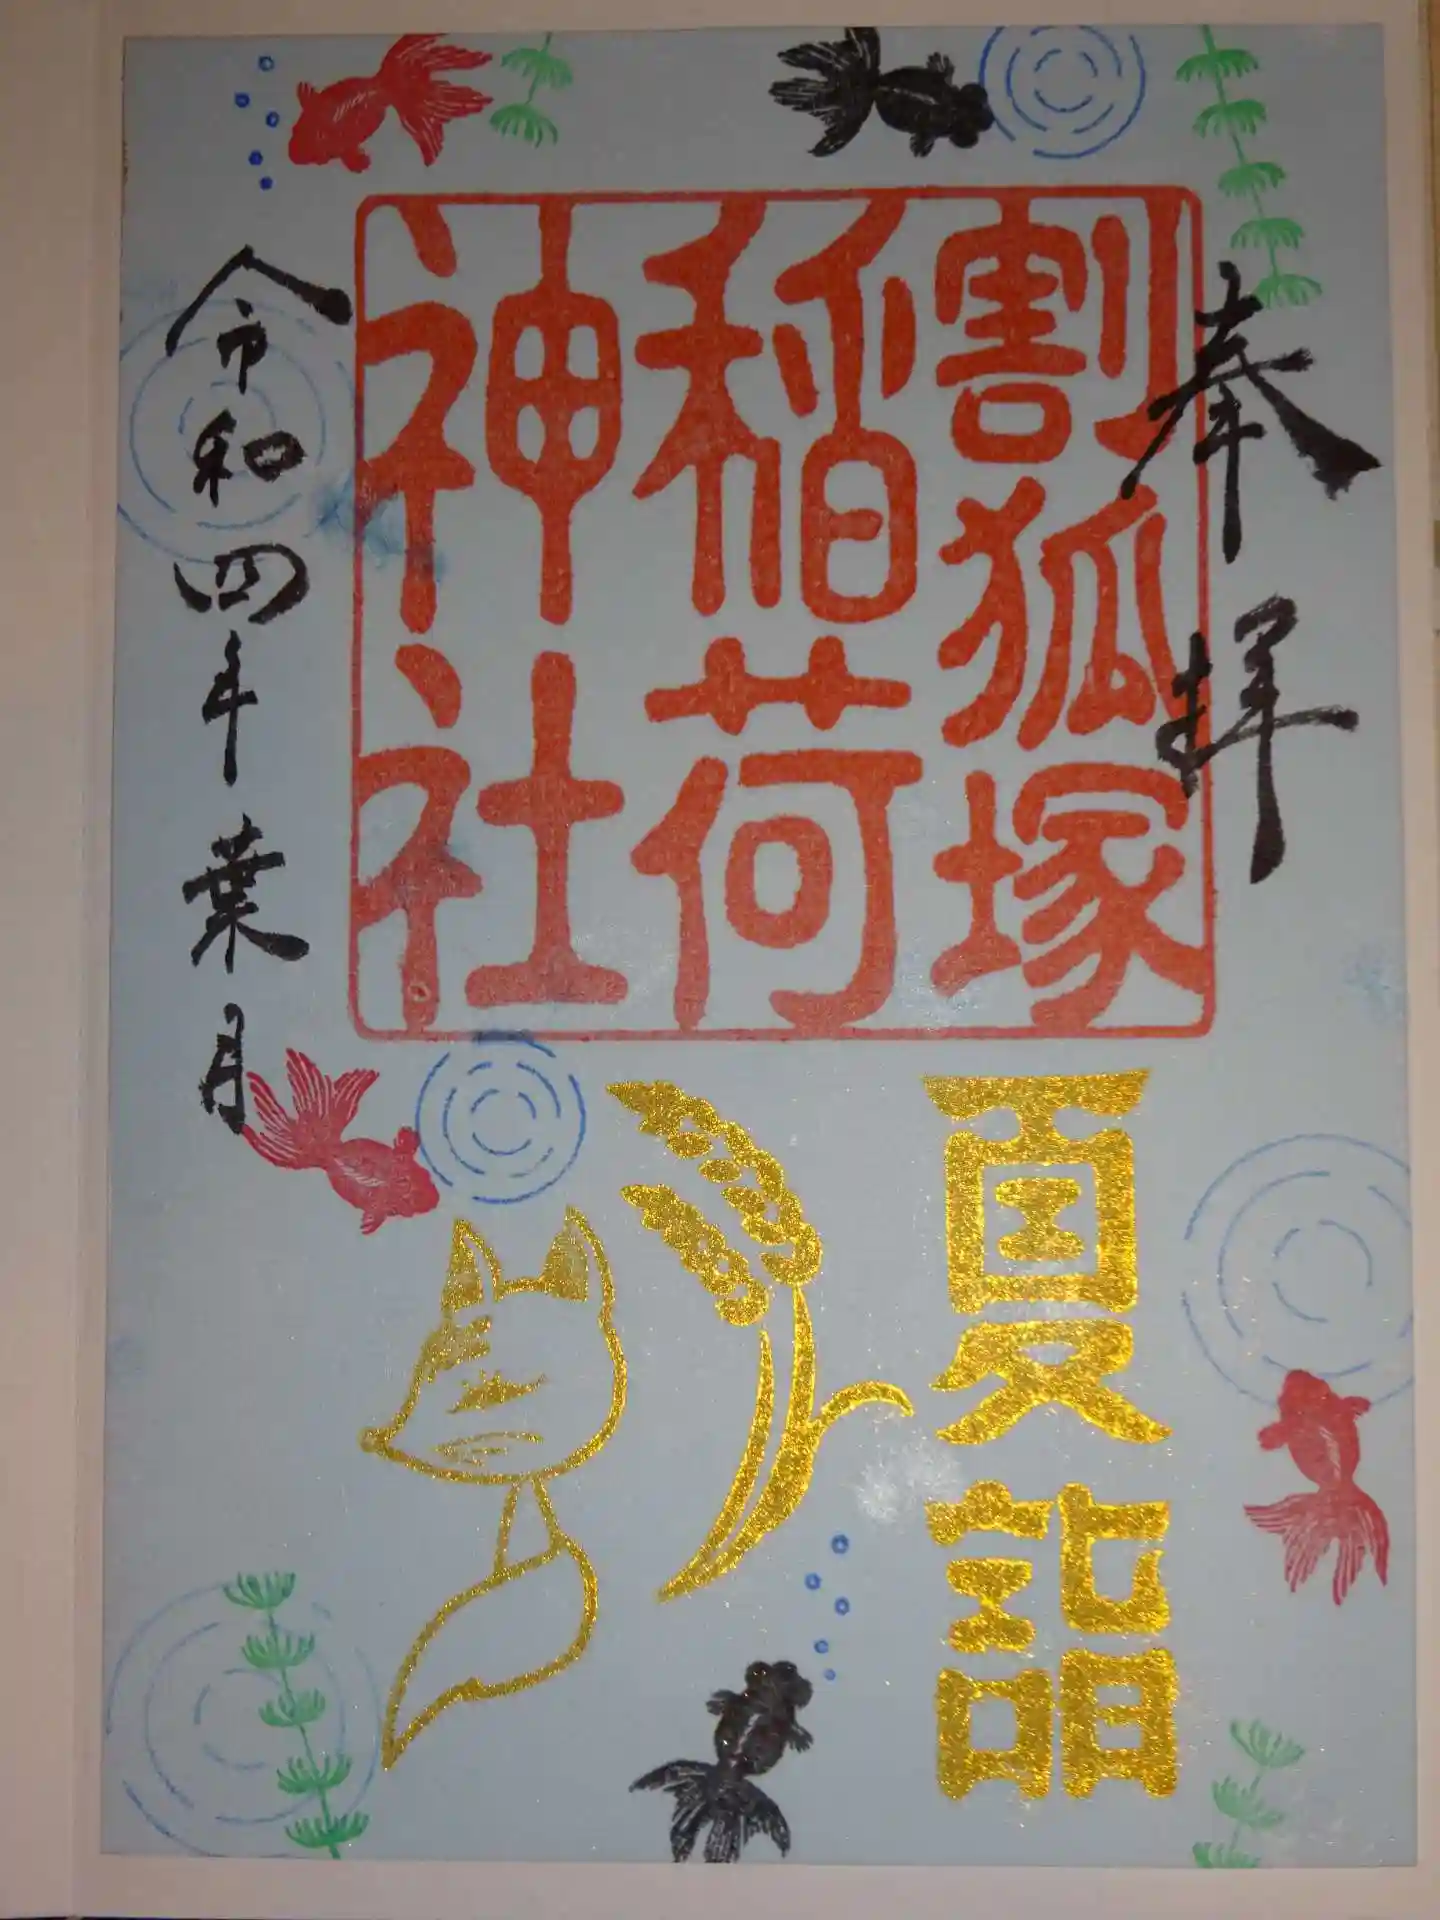 奉拝
割狐塚
稲荷
神社
夏詣
令和四年葉月